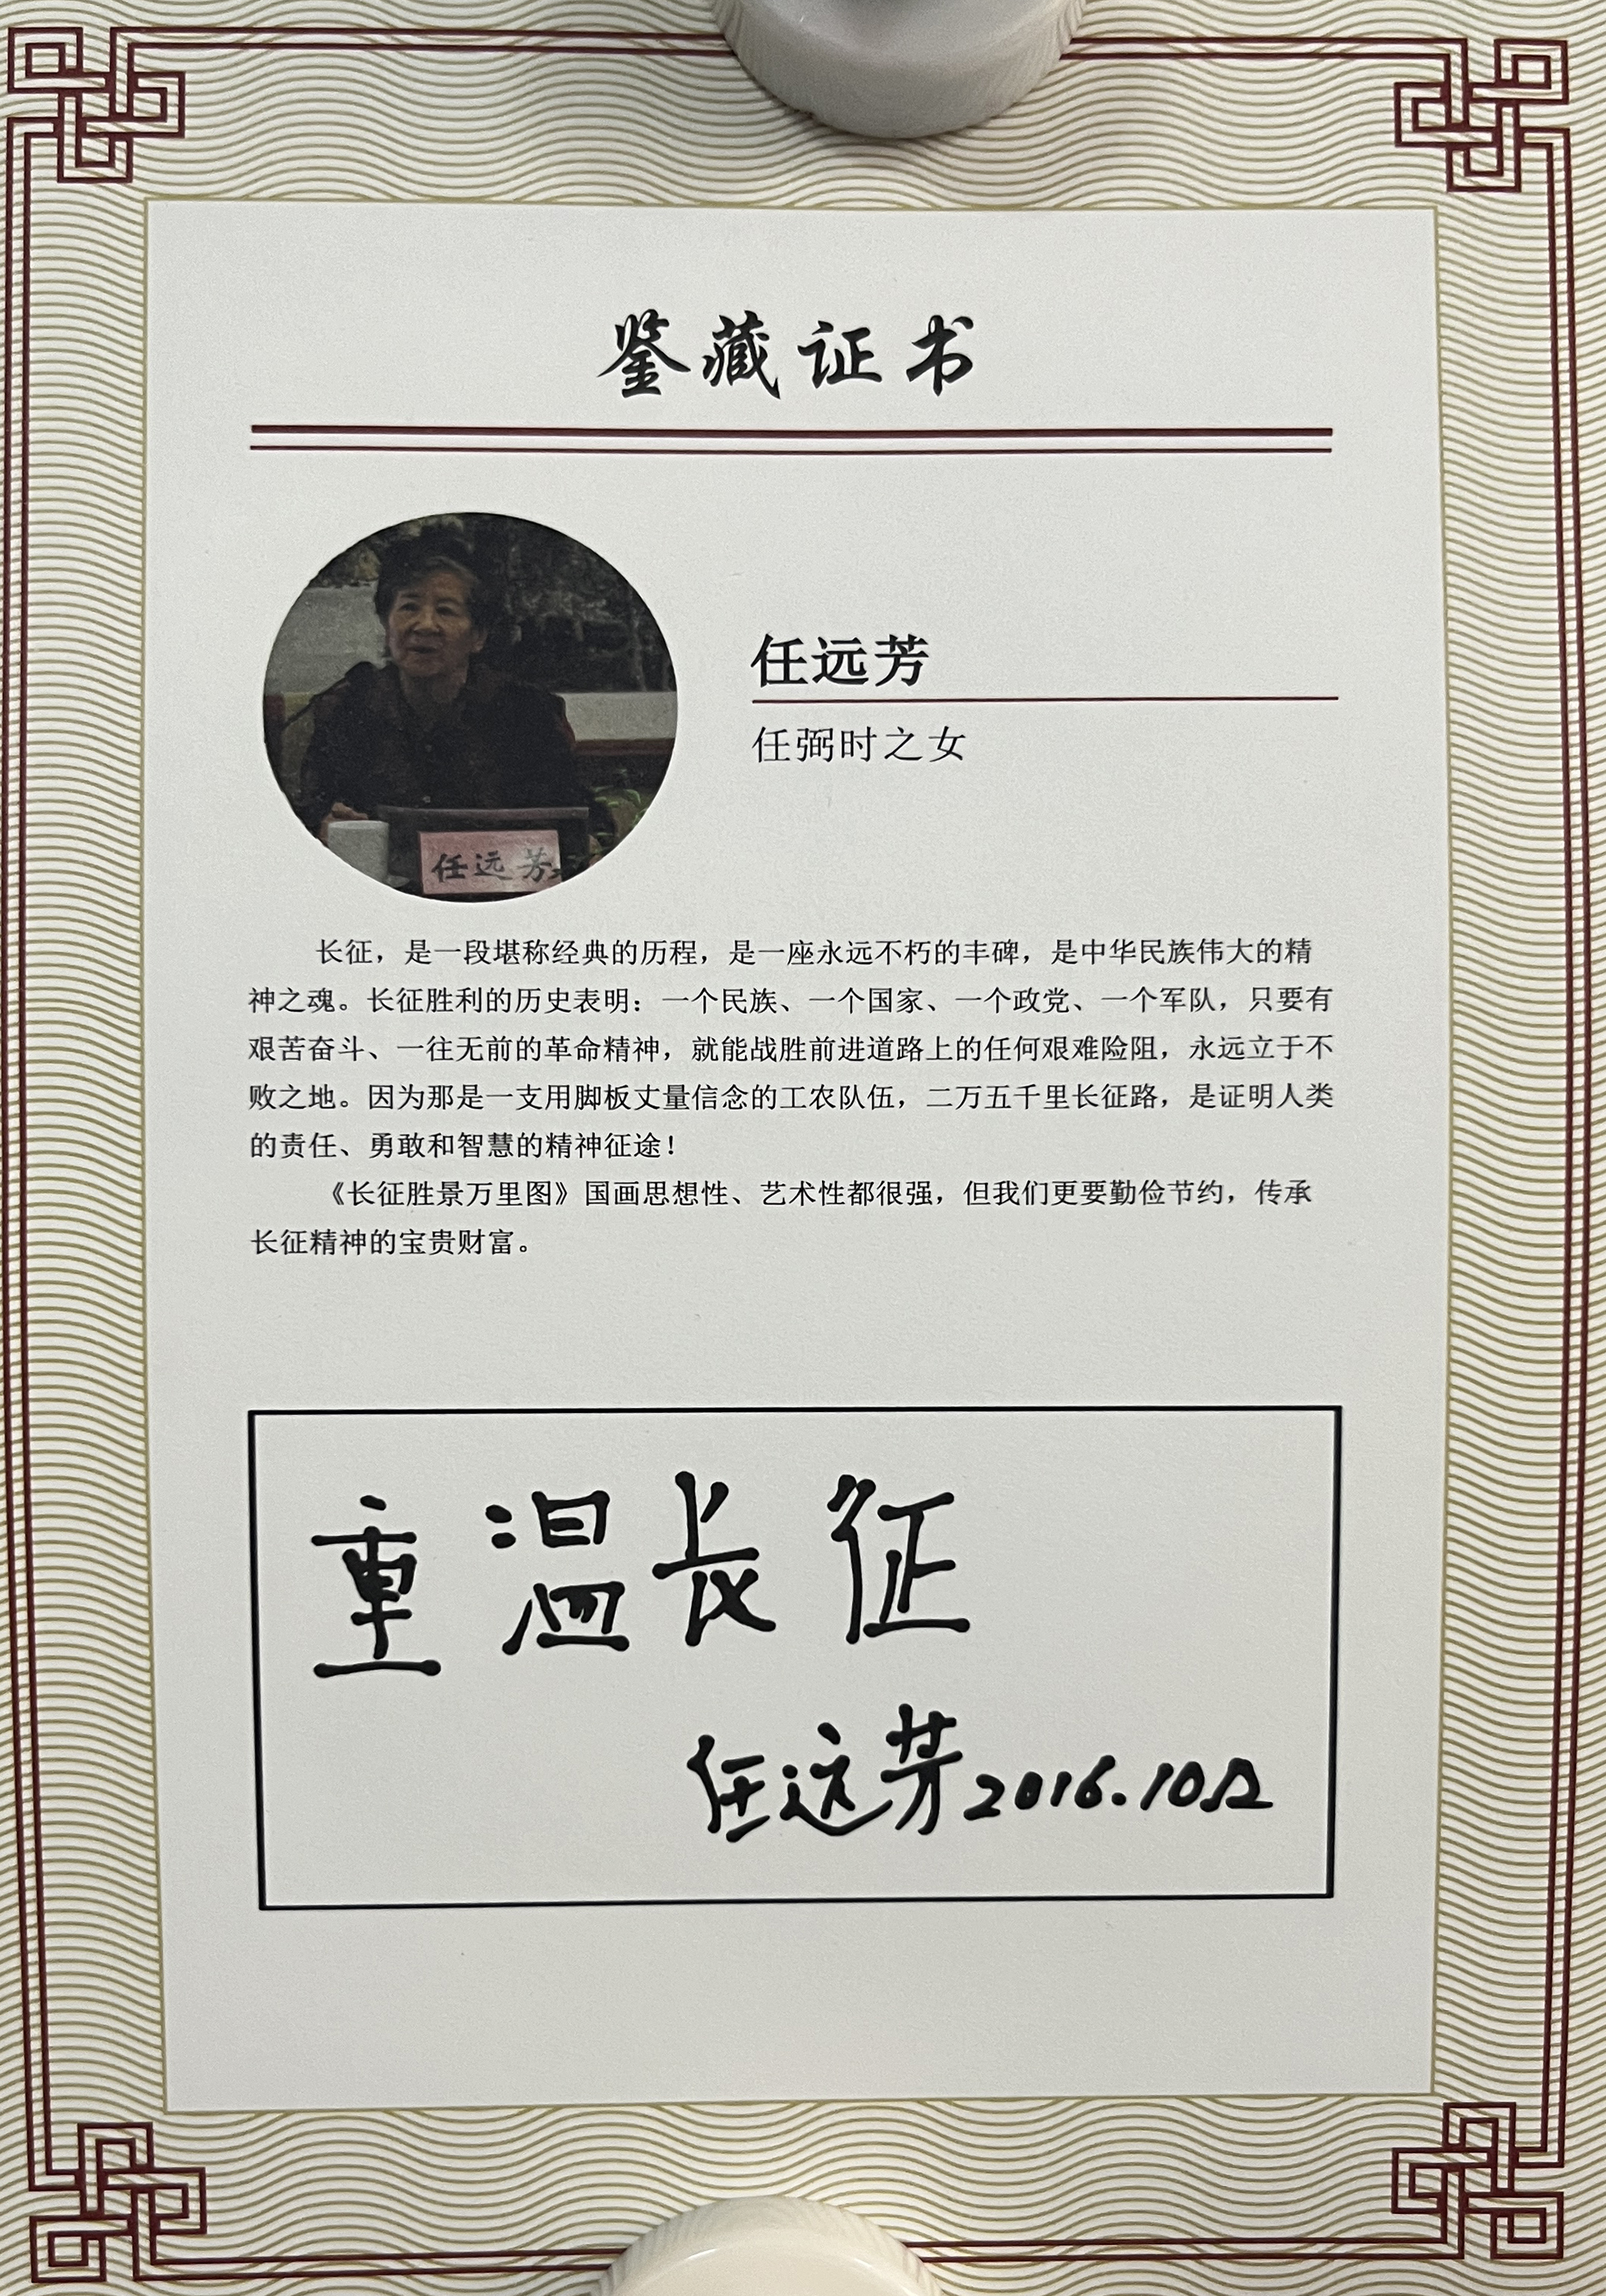 鉴藏证书
任远芳
任弼时之女
任远芳
长征，是一段堪称经典的历程，是一座永远不朽的丰碑，是中华民族伟大的精
神之魂。长征胜利的历史表明：一个民族、一个国家、一个政党、一个军队，只要有
艰苦奋斗、一往无前的革命精神，就能战胜前进道路上的任何艰难险阻，永远立于不
败之地。因为那是一支用脚板丈量信念的工农队伍，二万五千里长征路，是证明人类
的责任、勇敢和智慧的精神征途！
《长征胜景万里图》国画思想性、艺术性都很强，但我们更要勤俭节约，传承
长征精神的宝贵财富。
重温长征
任远芳2016.10